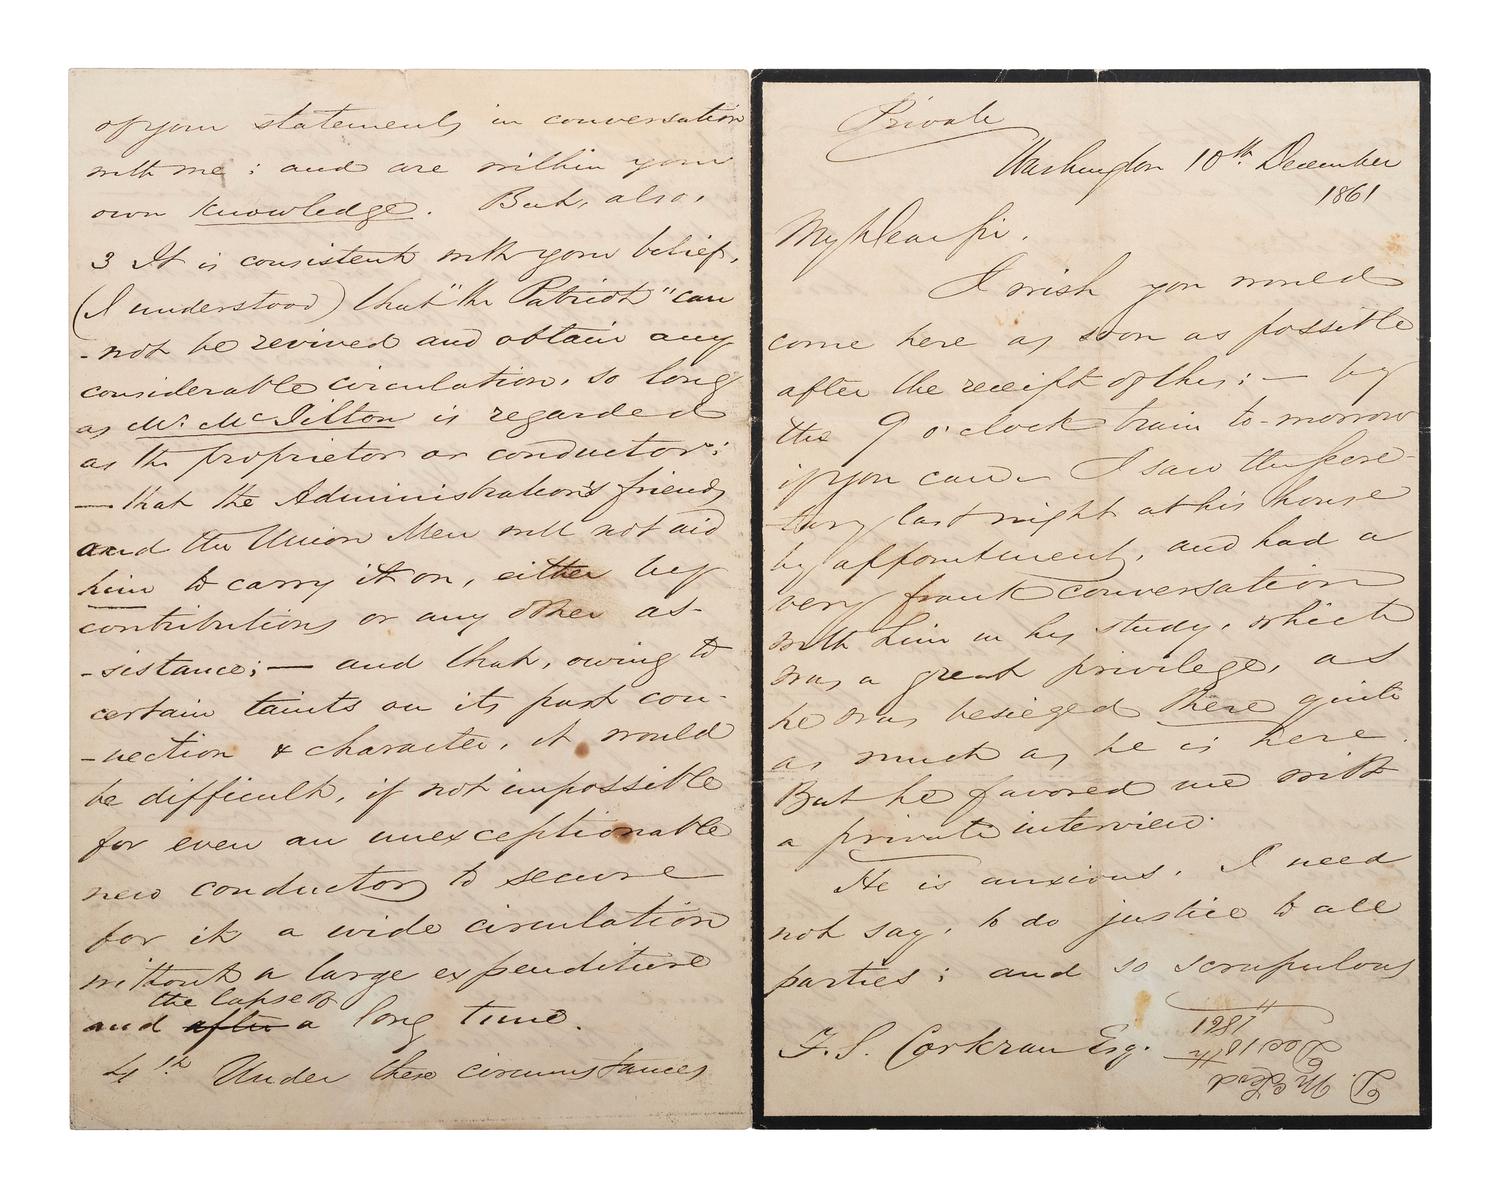 Private
Washington 10th December
1861
My Dear Sir.
I wish you would
come here as soon as possible
after the receipt of this: — by
the 9 o'clock train to-morrow
if you can. I saw the Secre-
tary last night at his house
by appointment, and had a
very frank conversation
with him in his study, which
was a great privilege, as
he was besieged there quite
as much as he is here.
But he favored me with
a private interview.
He is anxious, I need
not say, to do justice to all
parties; and so scrupulous
F. S. Corkran Esq.
D. McLeod
Dec 10th
1861
of your statements in conversation
with me; and are within your
own knowledge. But, also,
3 It is consistent with your belief,
(I understood) that "the Patriot" can
-not be revived and obtain any
considerable circulation, so long
as Mr. McJilton is regarded
as the proprietor or conductor;
— that the Administration's friends
and the Union Men will not aid
him to carry it on, either by
contributions or any other as-
-sistance; — and that, owing to
certain taints on its past con-
-nection & character, it would
be difficult, if not impossible
for even an unexceptionable
new conductor to secure
for it a wide circulation
without a large expenditure
the lapse of
and after a long time.
4th Under these circumstances